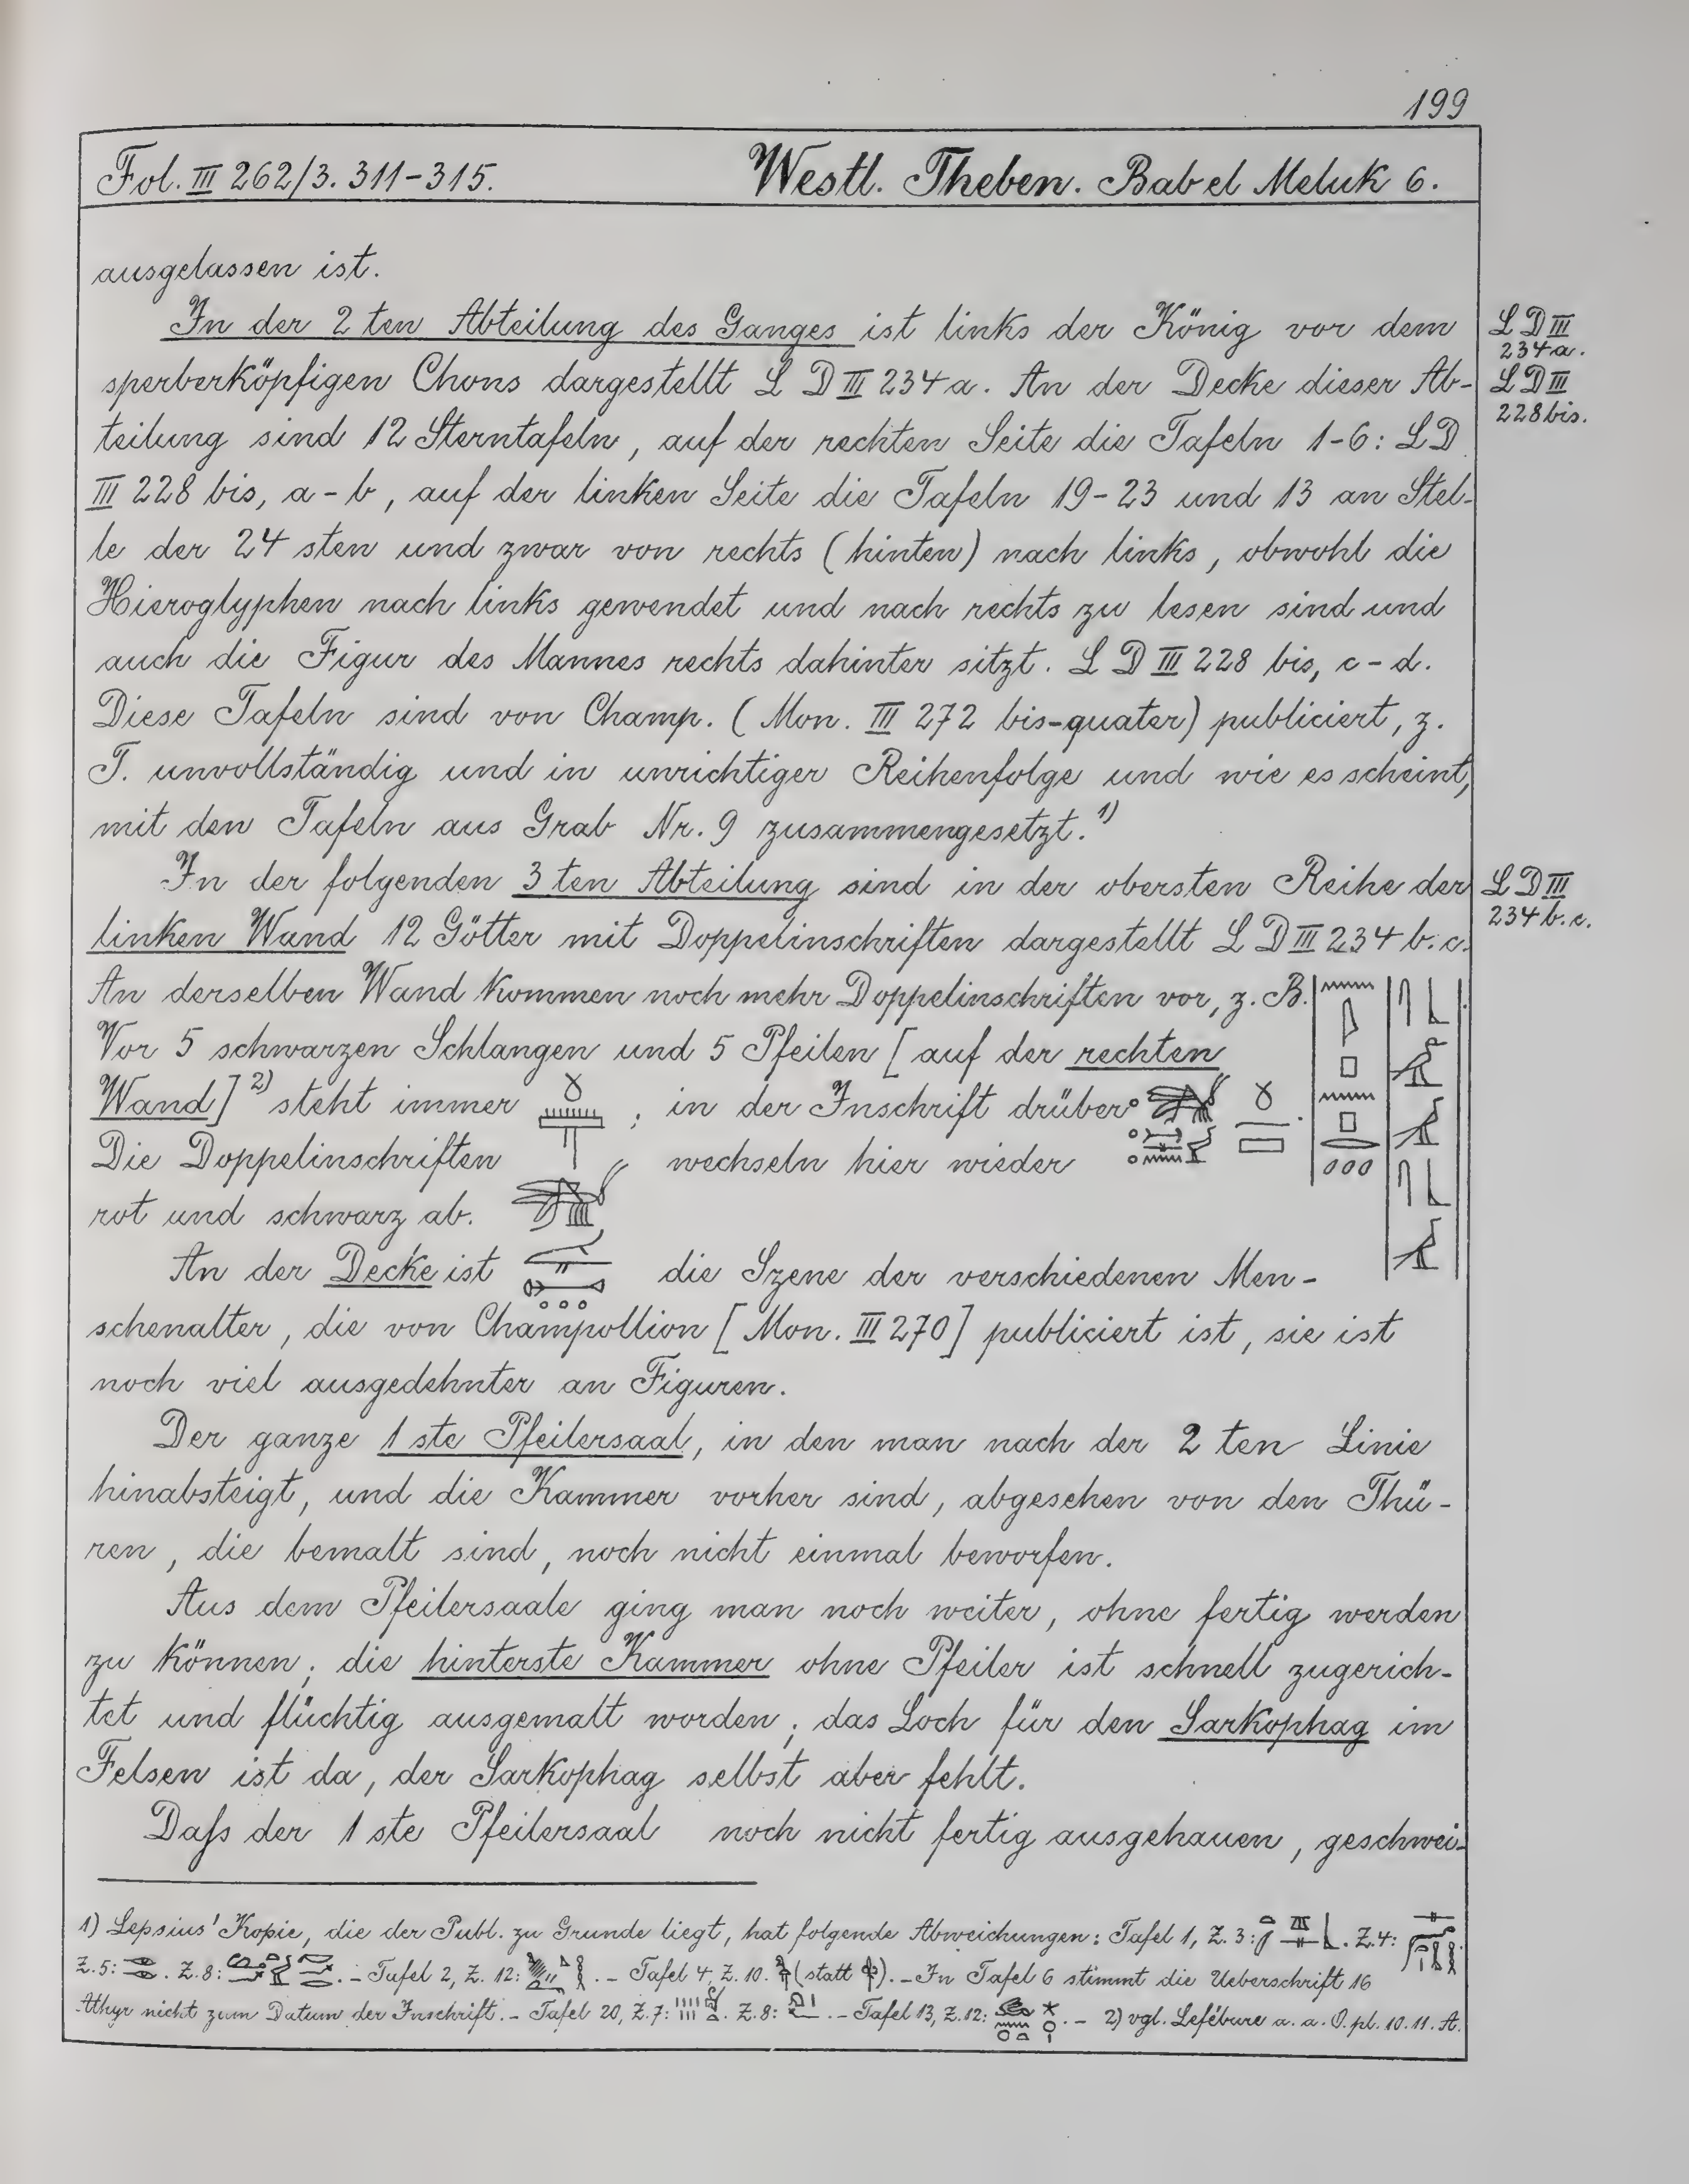 199
Fol. III 262/3. 311-315. Westl. Theben. Bab el Meluk 6.
ausgelassen ist.
In der 2 ten Abteilung des Ganges ist links der König vor dem
sperberköpfigen Chons dargestellt L D III 234 a. An der Decke dieser Ab-
teilung sind 12 Sterntafeln, auf der rechten Seite die Tafeln 1-6: L D
III 228 bis, a-b, auf der linken Seite die Tafeln 19-23 und 13 an Stel-
le der 24 sten und zwar von rechts (hinten) nach links, obwohl die
Hieroglyphen nach links gewendet und nach rechts zu lesen sind und
auch die Figur des Mannes rechts dahinter sitzt. L D III 228 bis, c-d.
Diese Tafeln sind von Champ. (Mon. III 272 bis-quater) publiciert, z.
T. unvollständig und in unrichtiger Reihenfolge und wie es scheint,
mit den Tafeln aus Grab Nr. 9 zusammengesetzt. 1)
In der folgenden 3 ten Abteilung sind in der obersten Reihe der
linken Wand 12 Götter mit Doppelinschriften dargestellt L D III 234 b. c.
An derselben Wand kommen noch mehr Doppelinschriften vor, z. B.
Vor 5 schwarzen Schlangen und 5 Pfeilen [auf der rechten
Wand] 2) steht immer ; in der Inschrift drüber
Die Doppelinschriften wechseln hier wieder
rot und schwarz ab.
An der Decke ist die Szene der verschiedenen Men-
schenalter, die von Champollion [Mon. III 270] publiciert ist, sie ist
noch viel ausgedehnter an Figuren.
Der ganze 1 ste Pfeilersaal, in den man nach der 2 ten Linie
hinabsteigt, und die Kammer vorher sind, abgesehen von den Thü-
ren, die bemalt sind, noch nicht einmal beworfen.
Aus dem Pfeilersaale ging man noch weiter, ohne fertig werden
zu können; die hinterste Kammer ohne Pfeiler ist schnell zugerich-
tet und flüchtig ausgemalt worden; das Loch für den Sarkophag im
Felsen ist da, der Sarkophag selbst aber fehlt.
Daſs der 1 ste Pfeilersaal noch nicht fertig ausgehauen, geschwei-
1) Lepsius' Kopie, die der Publ. zu Grunde liegt, hat folgende Abweichungen: Tafel 1, Z. 3: . Z. 4:
Z. 5: . Z. 8: . - Tafel 2, Z. 12: . - Tafel 4, Z. 10. (statt ). - In Tafel 6 stimmt die Ueberschrift 16
Athyr nicht zum Datum der Inschrift. - Tafel 20, Z. 7: . Z. 8: . - Tafel 13, Z. 12: . - 2) vgl. Lefébure a. a. O. pl. 10. 11. A.
L D III
234 a.
L D III
228 bis.
L D III
234 b. c.